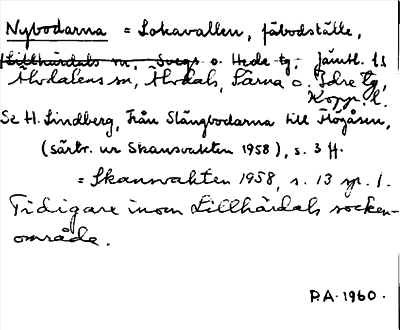 Nybodarna = Lokavallen, fäbodställe,
Lillhärdals sn, Svegs o. Hede tg. Jämtl. l.
Älvdalens sn, Älvdals, Särna o. Idre tg,
Kopp. l.
Se H. Lindberg, Från Slängbodarna till Högåsen,
(särtr. ur Skansvakten 1958), s. 3 ff.
= Skansvakten 1958, s. 13 sp. 1.
Tidigare inom Lillhärdals socken-
område.
P.A. 1960.